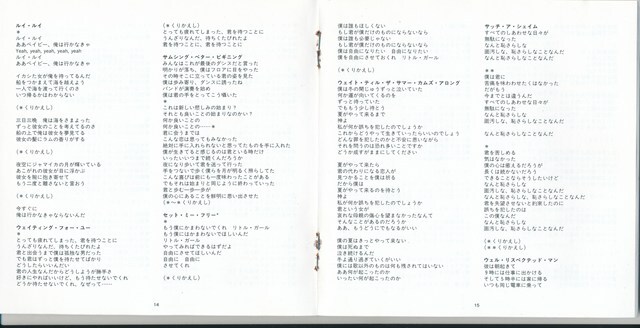 ルイ・ルイ
＊
ルイ・ルイ
ああベイビー、俺は行かなきゃ
Yeah, yeah, yeah, yeah
ルイ・ルイ
ああベイビー、俺は行かなきゃ
イカシた女が俺を待ってるんだ
船をつかまえて海を越えよう
一人で海を渡って行くのさ
いつ帰るかはわからない
(＊くりかえし)
三日三晩 俺は海をさまよった
ずっと彼女のことを考えてるのさ
船の上で俺は彼女を夢見てる
彼女の髪にバラの香りがする
(＊くりかえし)
夜空にジャマイカの月が輝いている
あこがれの彼女が目に浮かぶ
彼女を腕に抱き寄せて
もう二度と離さないと言おう
(＊くりかえし)
今すぐに
俺は行かなきゃならないんだ
ウェイティング・フォー・ユー
＊
とっても疲れてしまった、君を待つことに
うんざりなんだ、待ちくたびれたよ
君と出会うまで僕は孤独な男だった
でも君はずっと僕を待たせてばかり
どうしたらいいんだい
君の人生なんだからどうしようが勝手さ
好きにやればいいけど、もう待たせないでくれ
どうか待たせないでくれ、なぜって——
(＊くりかえし)
とっても疲れてしまった、君を待つことに
うんざりなんだ、待ちくたびれたよ
君を待つことに、君を待つことに
サムシング・ベター・ビギニング
みんなはこれが最後のダンスだと言った
明かりが落ち、僕はフロアに目をやった
その時そこに立っている君の姿を見た
僕は歩み寄り、ダンスに誘ったね
バンドが演奏を始め
僕は君の手をとってこう囁いた
＊
これは新しい悲しみの始まり？
それとも良いことの始まりなのかい？
何か良いことの
何か良いことの——＊
君に会うまでは
こんな恋は思ってもみなかった
絶対に手に入れられないと思ってたものを手に入れた
僕が生きてると感じるのは君といる時だけ
いったいいつまで続くんだろうか
夜になり歩いて君を送って行った
手をつないで歩く僕らを月が明るく照らしてた
こんな喜びは前にも一度味わったことがある
でもそれは始まりと同じように終わっていった
君と歩む一歩一歩が
僕の心にあることを鮮明に思い出させた
(＊〜＊くりかえし)
セット・ミー・フリー
＊
もう僕にかまわないでくれ リトル・ガール
もう僕にはかまわないでほしいんだ
リトル・ガール
やってみればできるはずだよ
自由にさせてほしいんだ
自由に 自由に
させてくれ
(＊くりかえし)
14
僕は誰もほしくない
もし君が僕だけのものにならないなら
僕は誰も必要じゃない
もし君が僕だけのものにならないなら
僕は自由になりたい 自由になりたい
僕を自由にさせておくれ リトル・ガール
(＊くりかえし)
ウェイト・ティル・ザ・サマー・カムズ・アロング
僕は手の閉じゅうずっと泣いていた
何か運が向いてくるのを
ずっと待っていた
でももう少し待とう
夏がやって来るまで
神よ
私が何か罪を犯したのでしょうか
これからどうやって生きていったらいいのでしょう
どんな罪を犯したのか全然思いつかない
それを問うのは恐れ多いことですか
どうか何がまずかったのか答えてください
夏がやって来たら
君のために変わろう
見つめることを僕は祈る
だから僕は
夏がやって来るのを待とう
神よ
私が何か罪を犯したのでしょうか
君という女が
哀れな母親の傷心を望まなかったなんて
そんなことがあるのだろうか
ああ、もうどうにでもなるがいい
僕の夏はきっとやって来ない
僕は死ぬまで
泣き続けるんだ
冬より寒くさびしい
僕には歌以外のものは何も残されていない
ああ何が起こったのか
いったい何が起こったのか
サッチ・ア・シェイム
すべてのしあわせな日々が
無駄になった
なんと恥さらしな
面汚し、なんと恥さらしなことなんだ
面汚し、なんと恥さらしなことなんだ
＊
＊＊
僕は君に
苦痛を味わわせたくはなかった
だがもう
今までとは違うんだ
すべてのしあわせな日々が
無駄になった
なんと恥さらしな
面汚し、なんと恥さらしなことなんだ
なんと恥さらしなことなんだ
＊
君を苦しめる
気はなかった
僕の心は思えるだろうが
長くは続かないだろう
できることならそうしたいけど
なんと恥さらしな
面汚し、なんと恥さらしなことなんだ
面汚し、なんと恥さらしなことなんだ
君を失望させないと約束したのに
誤ちを犯したのは
この僕なんだ
なんと恥さらしな
面汚し、なんと恥さらしなことなんだ
(＊くりかえし)
(＊＊くりかえし)
ウェル・リスペクテッド・マン
彼は朝起きて
9時には仕事に出かける
そして5時半には家に帰る
いつも同じ電車に乗って
15